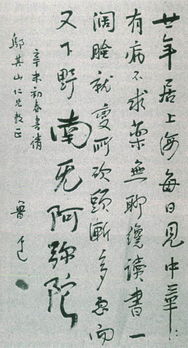 廿年居上海每日見中華:
有病不求藥無聊纔讀書一
闊臉就變所砍頭漸多忽而
又下野南无阿彌陀
辛未初春書請
鄔其山仁兄教正
魯迅